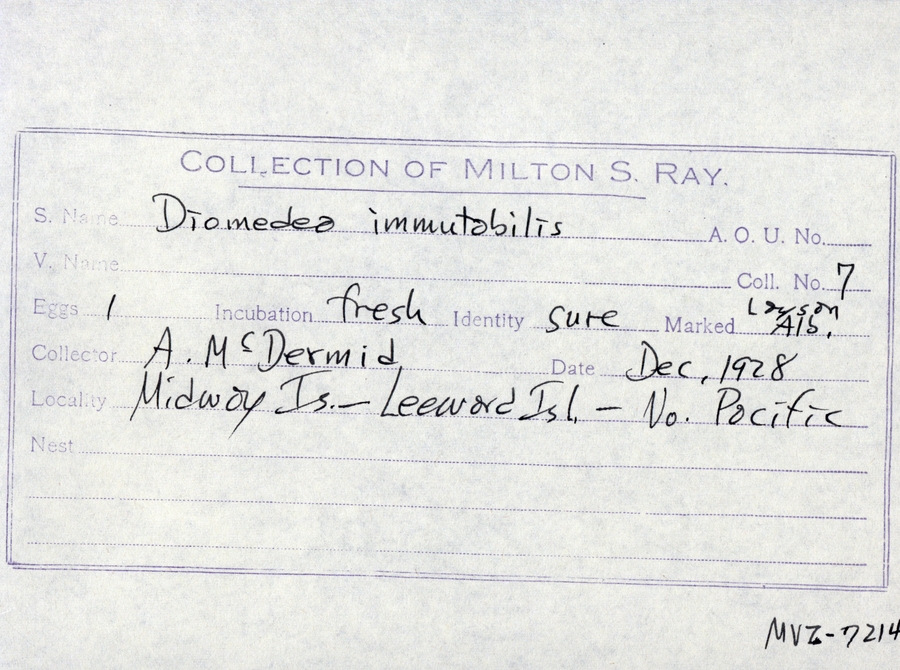 COLLECTION OF MILTON S. RAY.
S. Name Diomedea immutabilis A. O. U. No.
V. Name Coll. No. 7
Eggs 1 Incubation fresh Identity sure Marked Laysan Alb.
Collector A. McDermid Date Dec, 1928
Locality Midway Is. - Leeward Isl. - No. Pacific
Nest
MVZ-7214